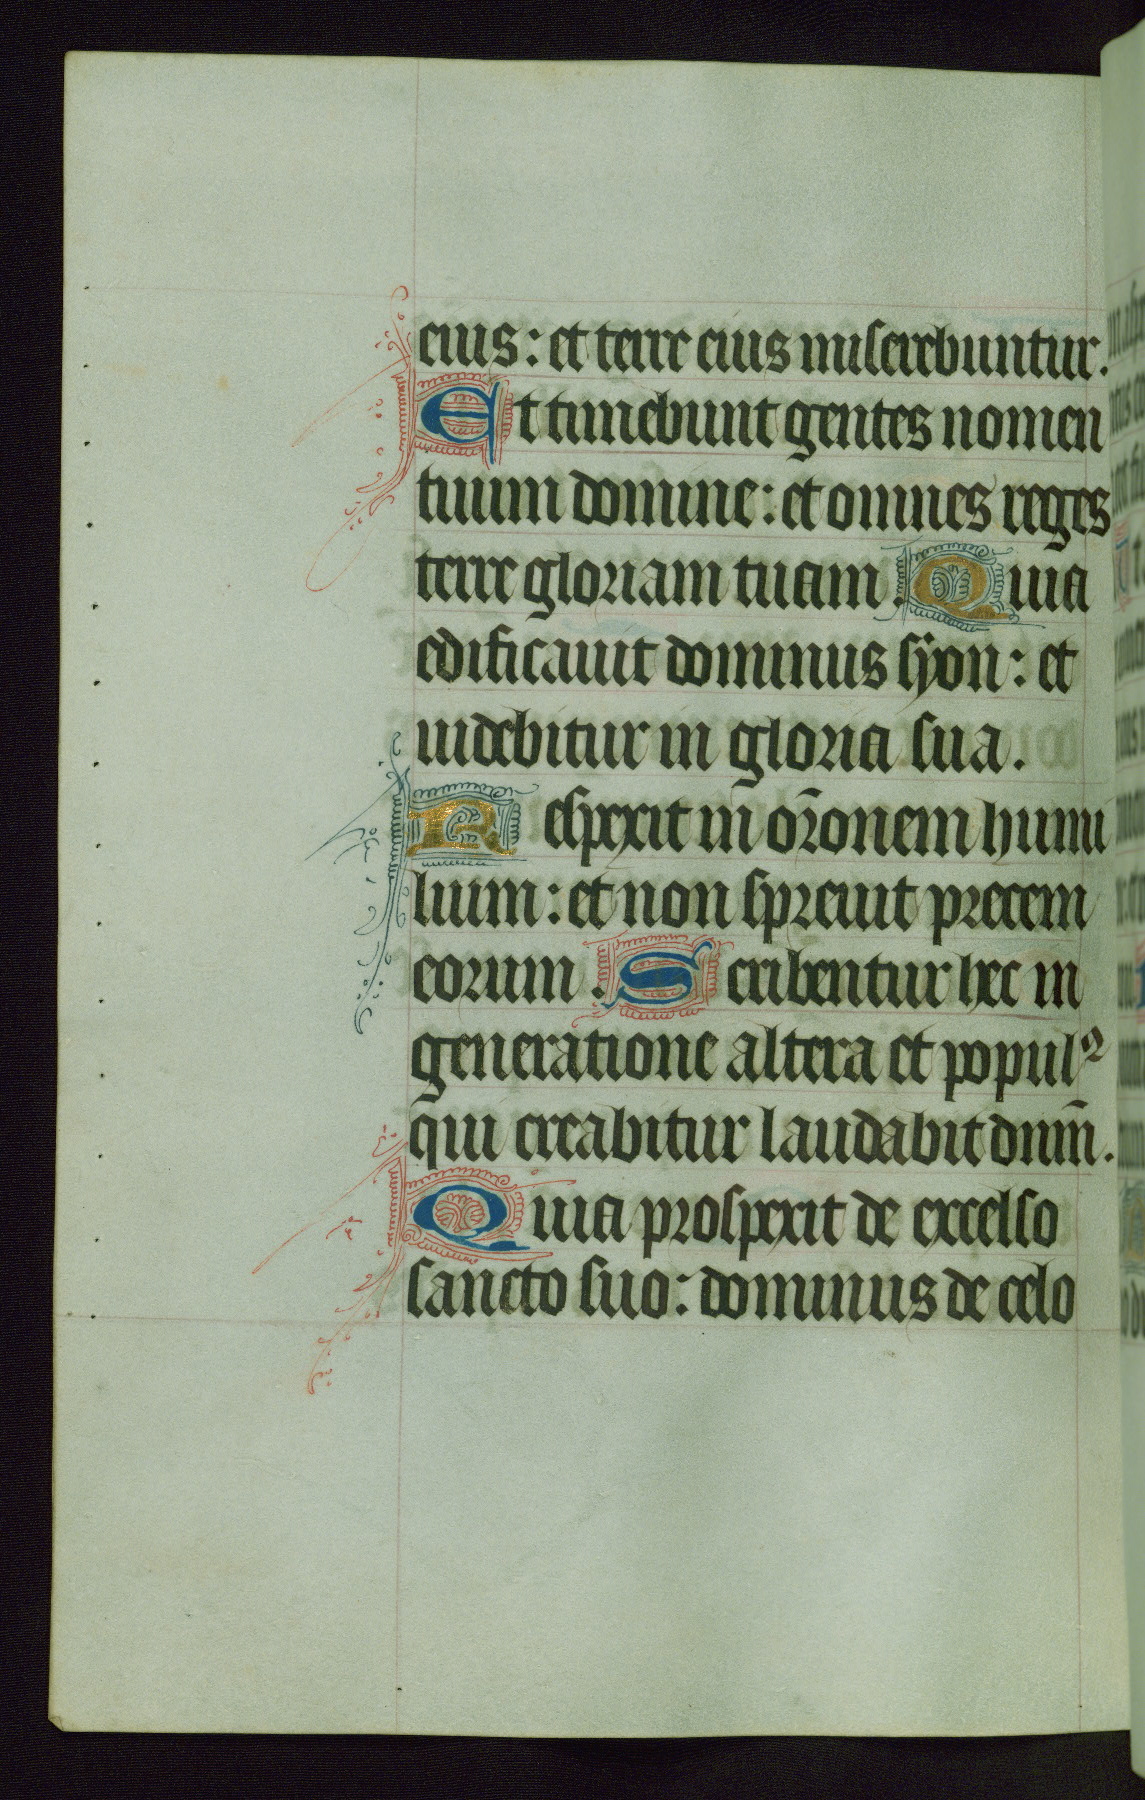 eius: et terre eius miserebuntur.
Et timebunt gentes nomen
tuum domine: et omnes reges
terre gloriam tuam. Quia
edificauit dominus syon: et
uidebitur in gloria sua.
Respexit in or̄onem humi
lium: et non spreuit precem
eorum. Scribentur hec in
generatione altera et populꝰ
qui creabitur laudabit dnm̄.
Quia prospexit de excelso
sancto suo: dominus de celo